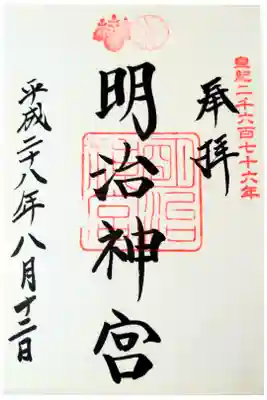 皇紀二千六百七十六年
奉拝
明治神宮
明治神宮
平成二十八年八月十二日